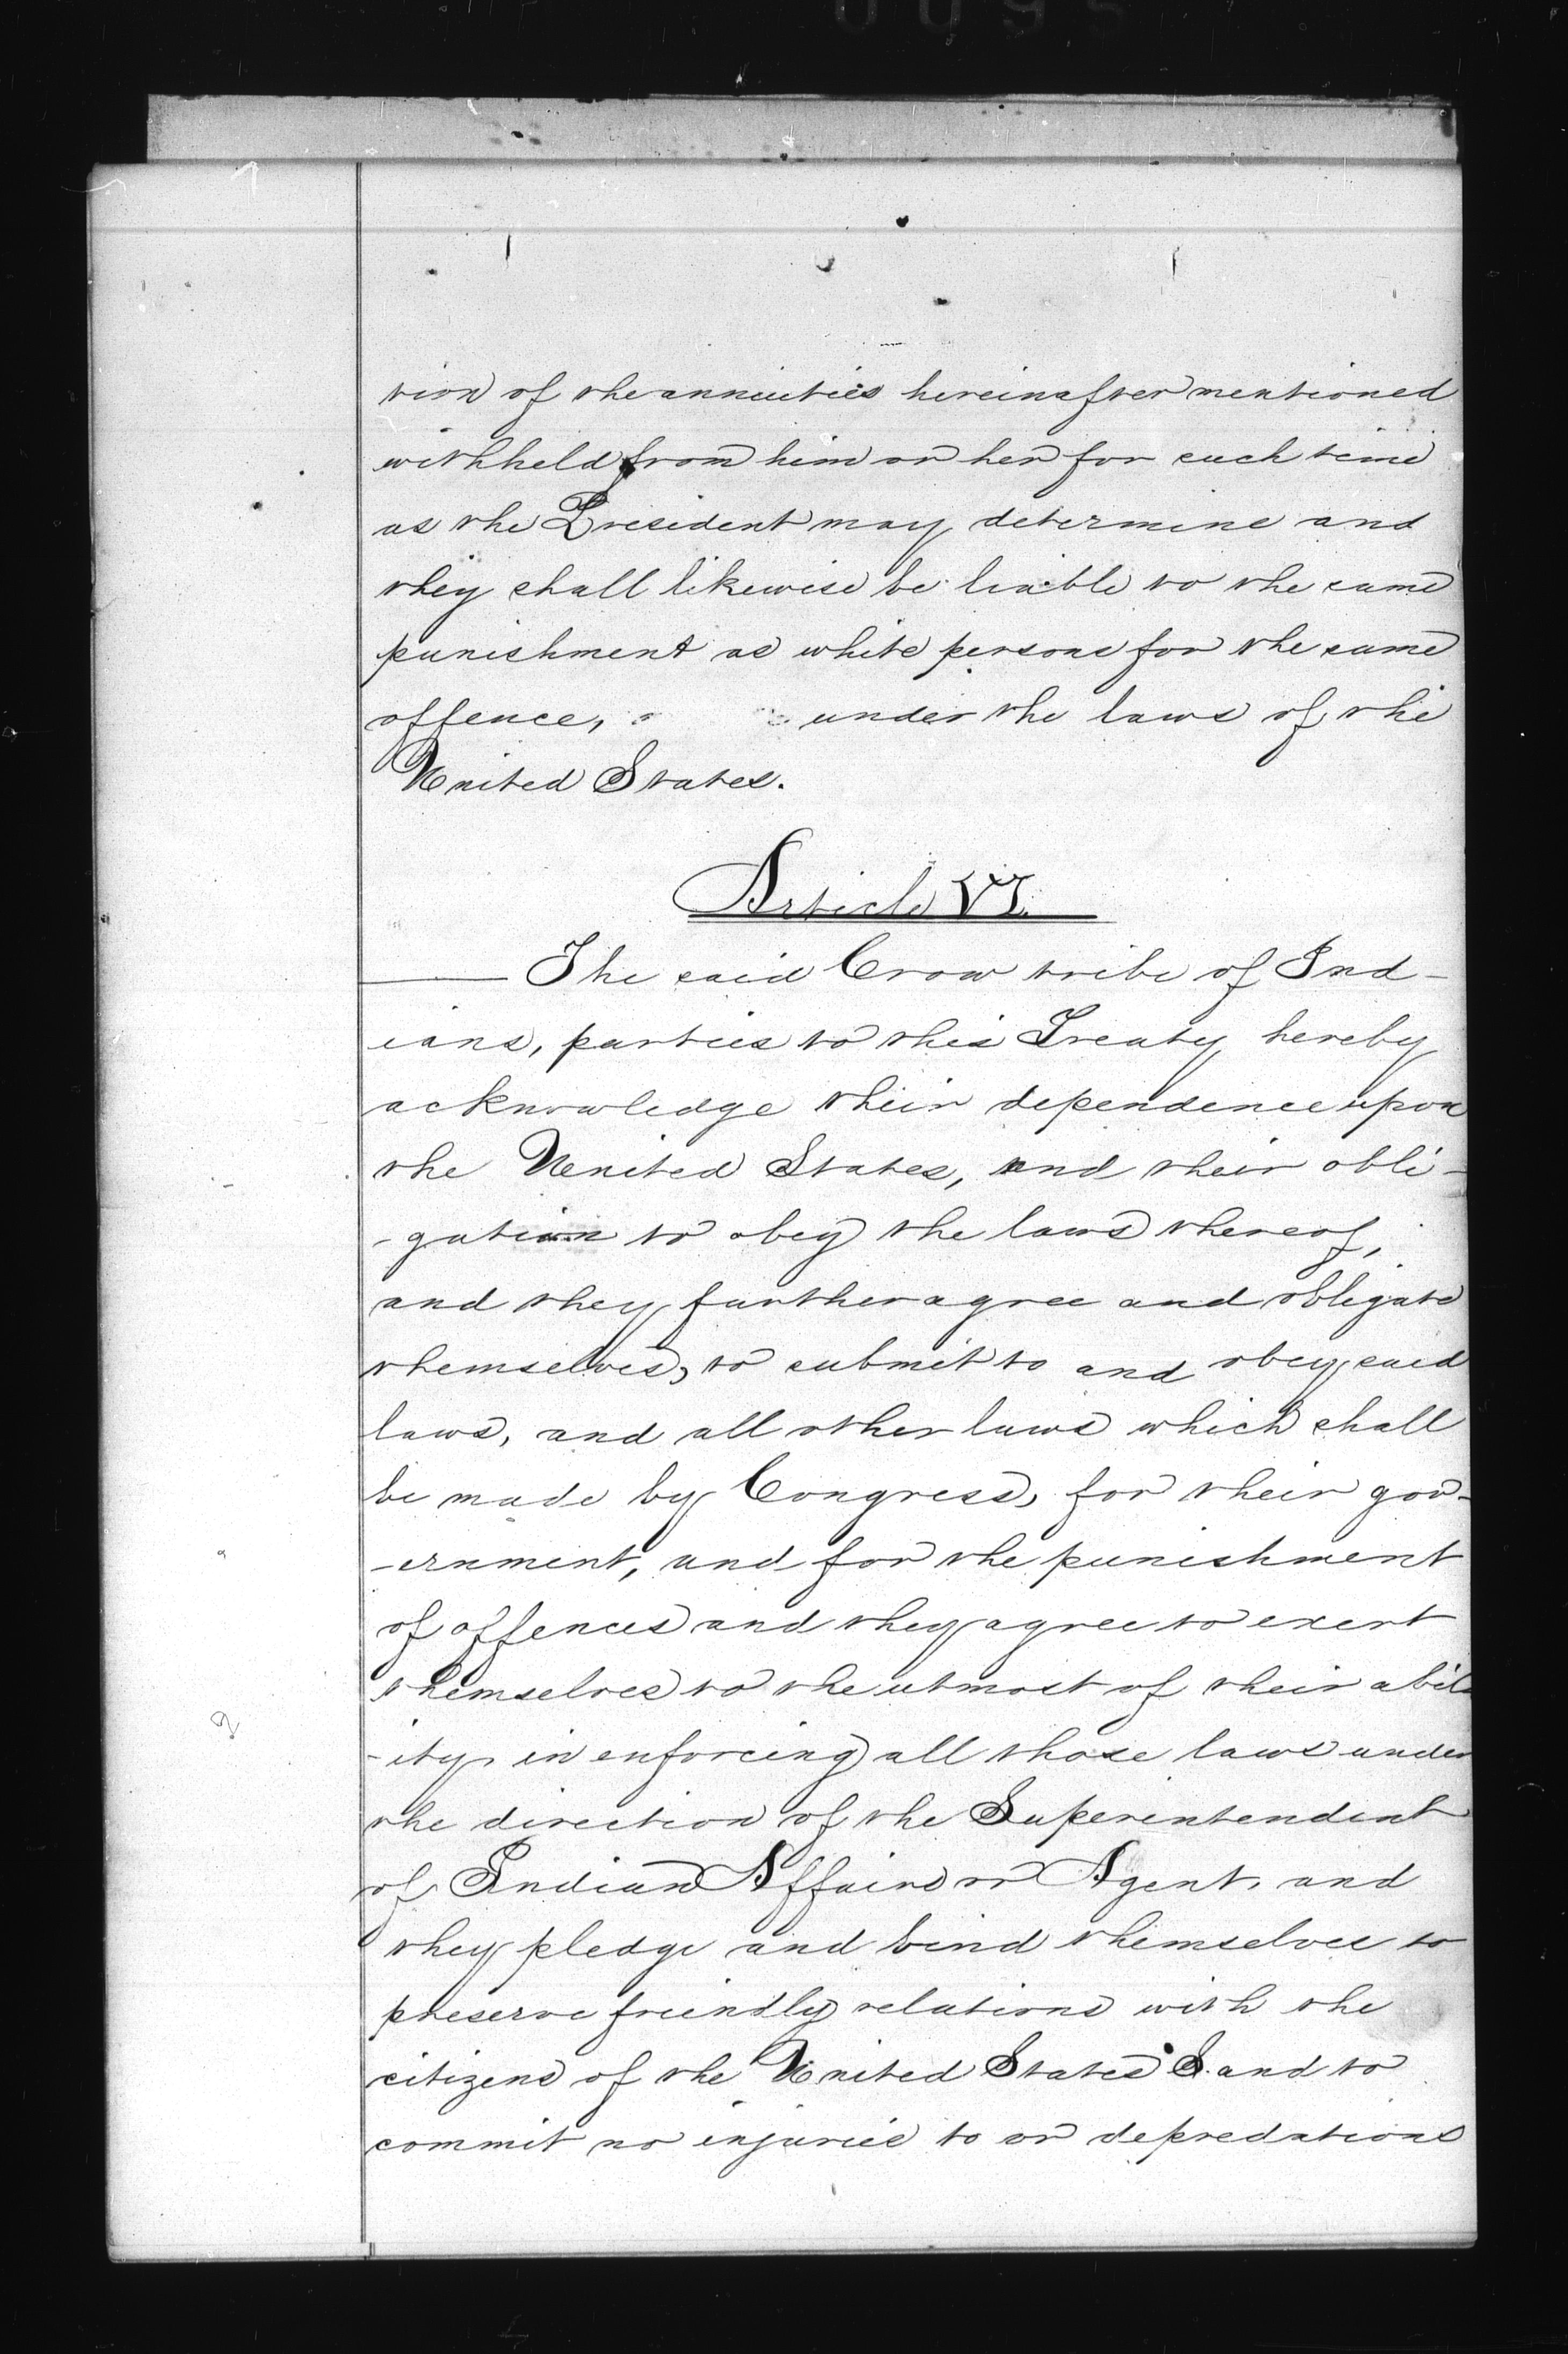 0095
tion of the annuities hereinafter mentioned
withheld from him or her for such time
as the President may determine and
they shall likewise be liable to the same
punishment as white persons for the same
offence, under the laws of the
United States.
Article VI.
The said Crow tribe of Ind-
ians, parties to this Treaty hereby
acknowledge their dependence upon
the United States, and their obli-
-gation to obey the laws thereof,
and they further agree and obligate
themselves, to submit to and obey said
laws, and all other laws which shall
be made by Congress, for their gov-
-ernment, and for the punishment
of offences and they agree to exert
themselves to the utmost of their abil
-ity, in enforcing all those laws under
the direction of the Superintendent
of Indian Affairs or Agent, and
they pledge and bind themselves to
preserve friendly relations with the
citizens of the United States S. and to
commit no injuries to or depredations